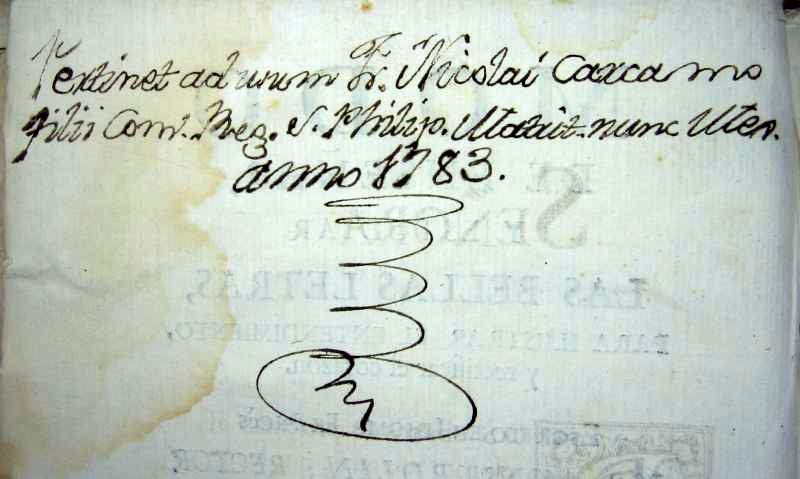 Pertinet ad usum Fr. Nicolai Carcamo
filii Conv. Reg. S. Philip. Matrit. nunc
anno 1783.
SEÑAR
LAS BELLAS LETRAS,
PARA ILUSTRAR EL ENTENDIMIENTO,
y rectificar el corazon.
RECTOR